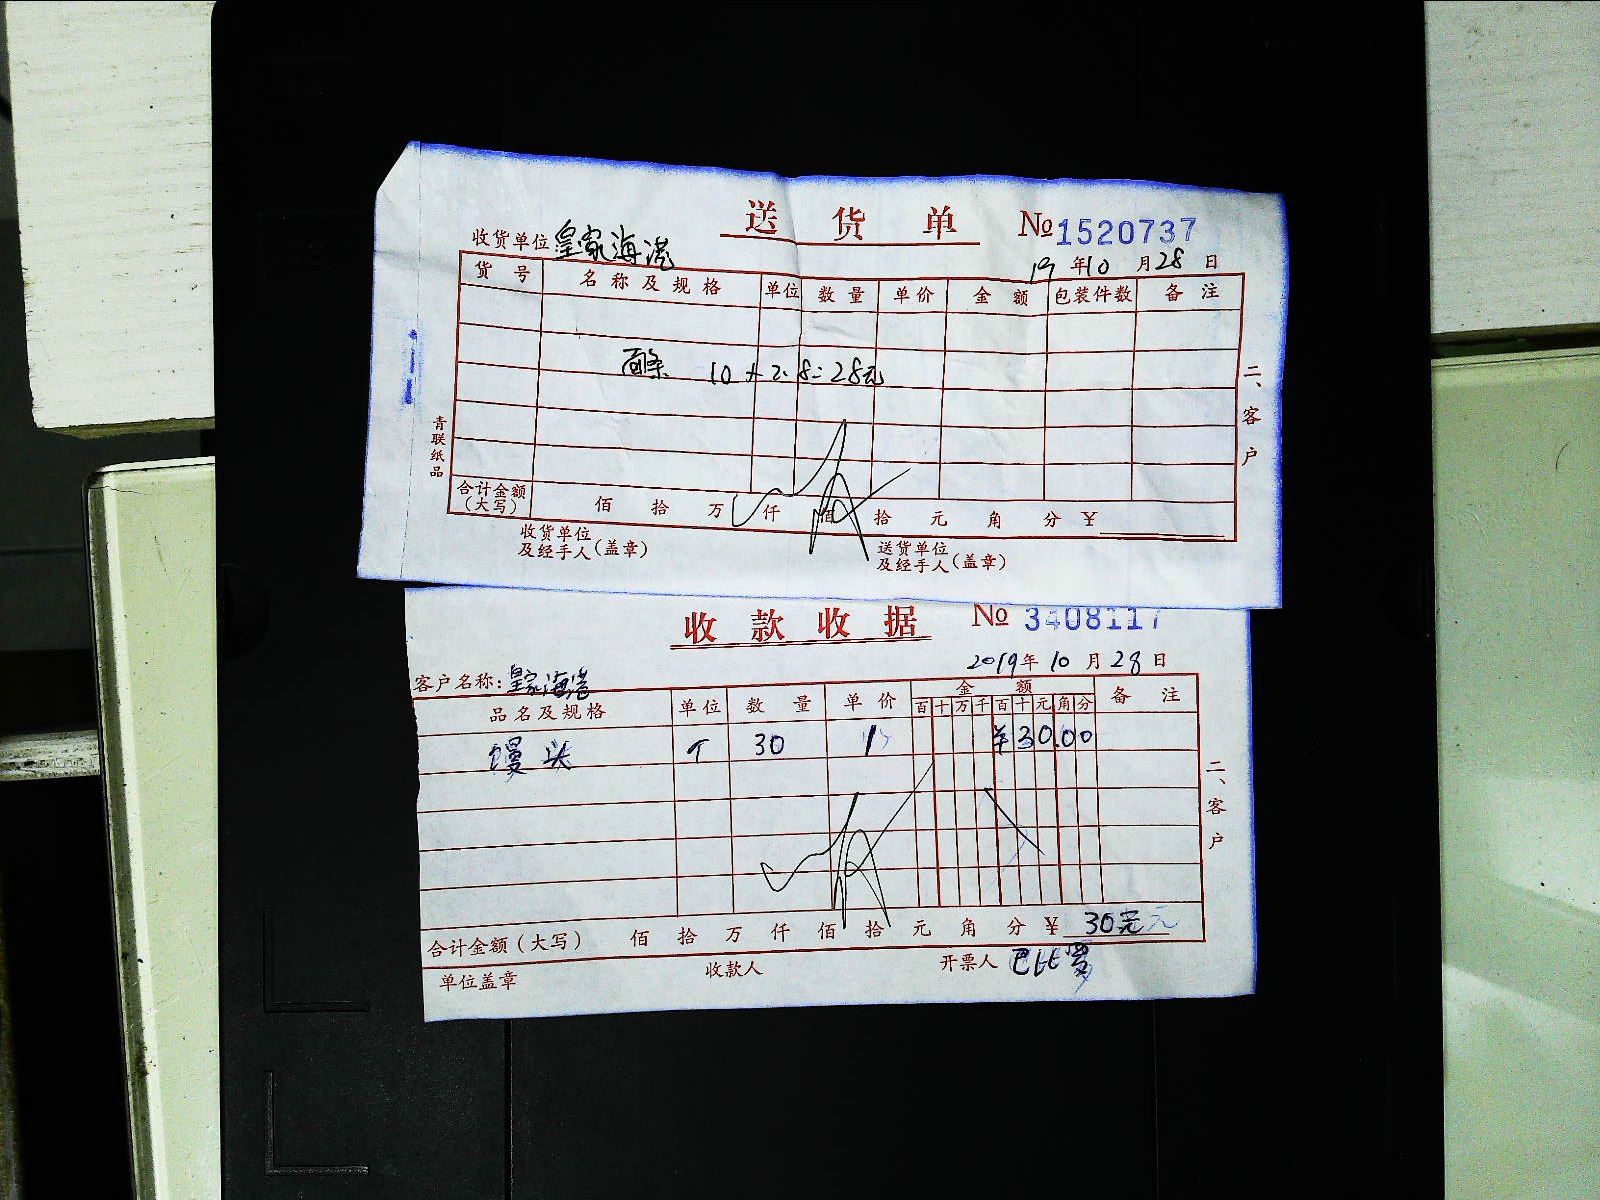 送货单 №1520737
收货单位 皇家海港
19年10月28日
货号 名称及规格 单位 数量 单价 金额 包装件数 备注
面条 10×2.8=28元
合计金额（大写） 佰 拾 万 仟 佰 拾 元 角 分 ￥
收货单位及经手人（盖章） 送货单位及经手人（盖章）
青联纸品
二、客户
收款收据 № 3408117
2019年10月28日
客户名称：皇家海港
品名及规格 单位 数量 单价 金额 备注
百 十 万 千 百 十 元 角 分
馒头 个 30 1 ￥30.00
合计金额（大写） 佰 拾 万 仟 佰 拾 元 角 分 ￥ 30元
单位盖章 收款人 开票人
二、客户